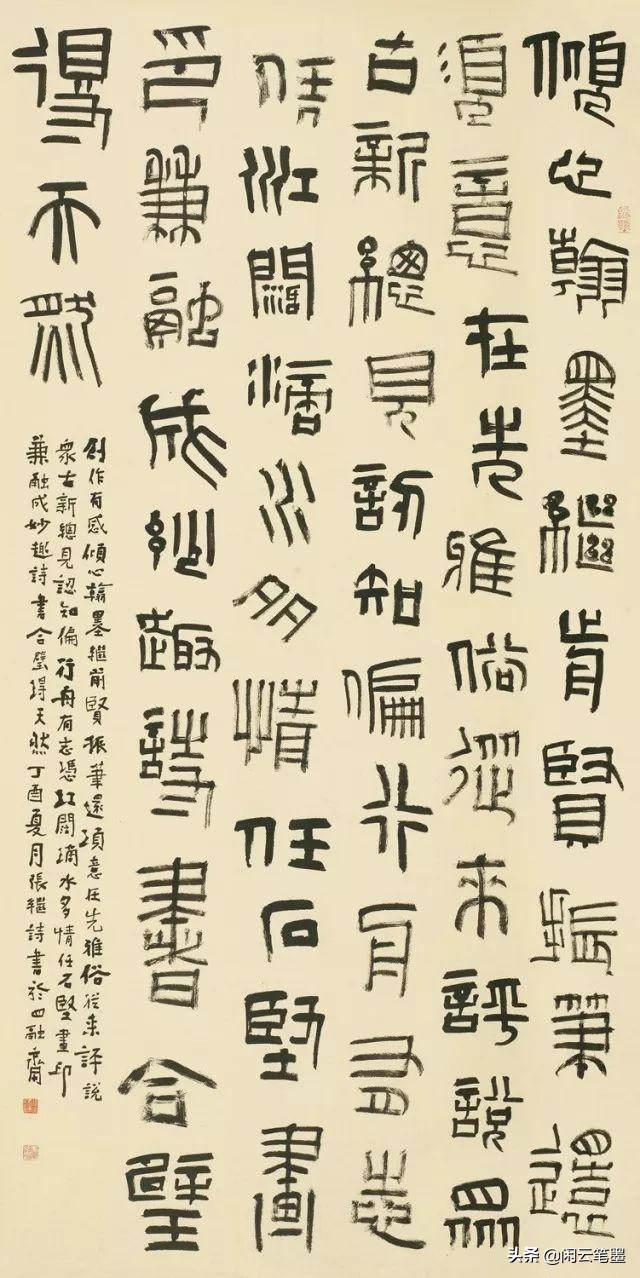 傾心翰墨繼前賢振筆還
須意在先雅俗從來評說眾
古新總見認知偏行舟有志
憑江闊滴水多情任石堅畫
印兼融成妙趣詩書合璧
得天然
創作有感傾心翰墨繼前賢振筆還須意在先雅俗從來評說
眾古新總見認知偏行舟有志憑江闊滴水多情任石堅畫印
兼融成妙趣詩書合璧得天然丁酉夏月張繼詩書於四融齋
头条 @闲云笔墨